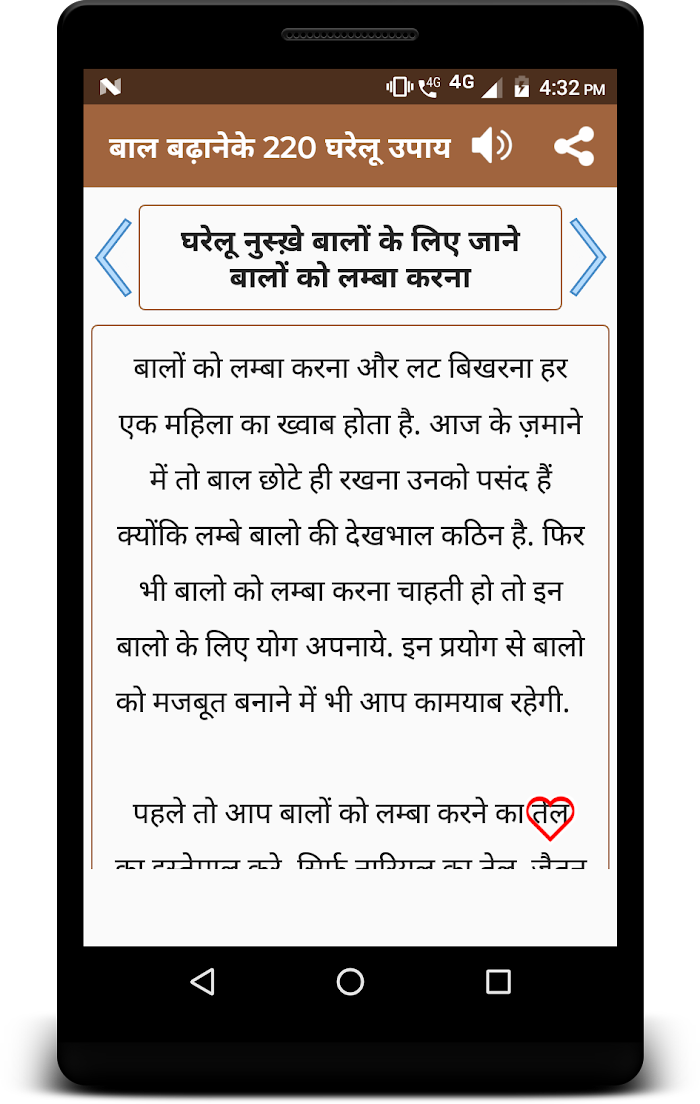 4G 4G 4:32 PM
बाल बढ़ानेके 220 घरेलू उपाय
घरेलू नुस्ख़े बालों के लिए जाने
बालों को लम्बा करना
बालों को लम्बा करना और लट बिखरना हर
एक महिला का ख्वाब होता है. आज के ज़माने
में तो बाल छोटे ही रखना उनको पसंद हैं
क्योंकि लम्बे बालो की देखभाल कठिन है. फिर
भी बालो को लम्बा करना चाहती हो तो इन
बालो के लिए योग अपनाये. इन प्रयोग से बालो
को मजबूत बनाने में भी आप कामयाब रहेगी.
पहले तो आप बालों को लम्बा करने का तेल
का इस्तेमाल करे. सिर्फ नारियल का तेल, जैतून